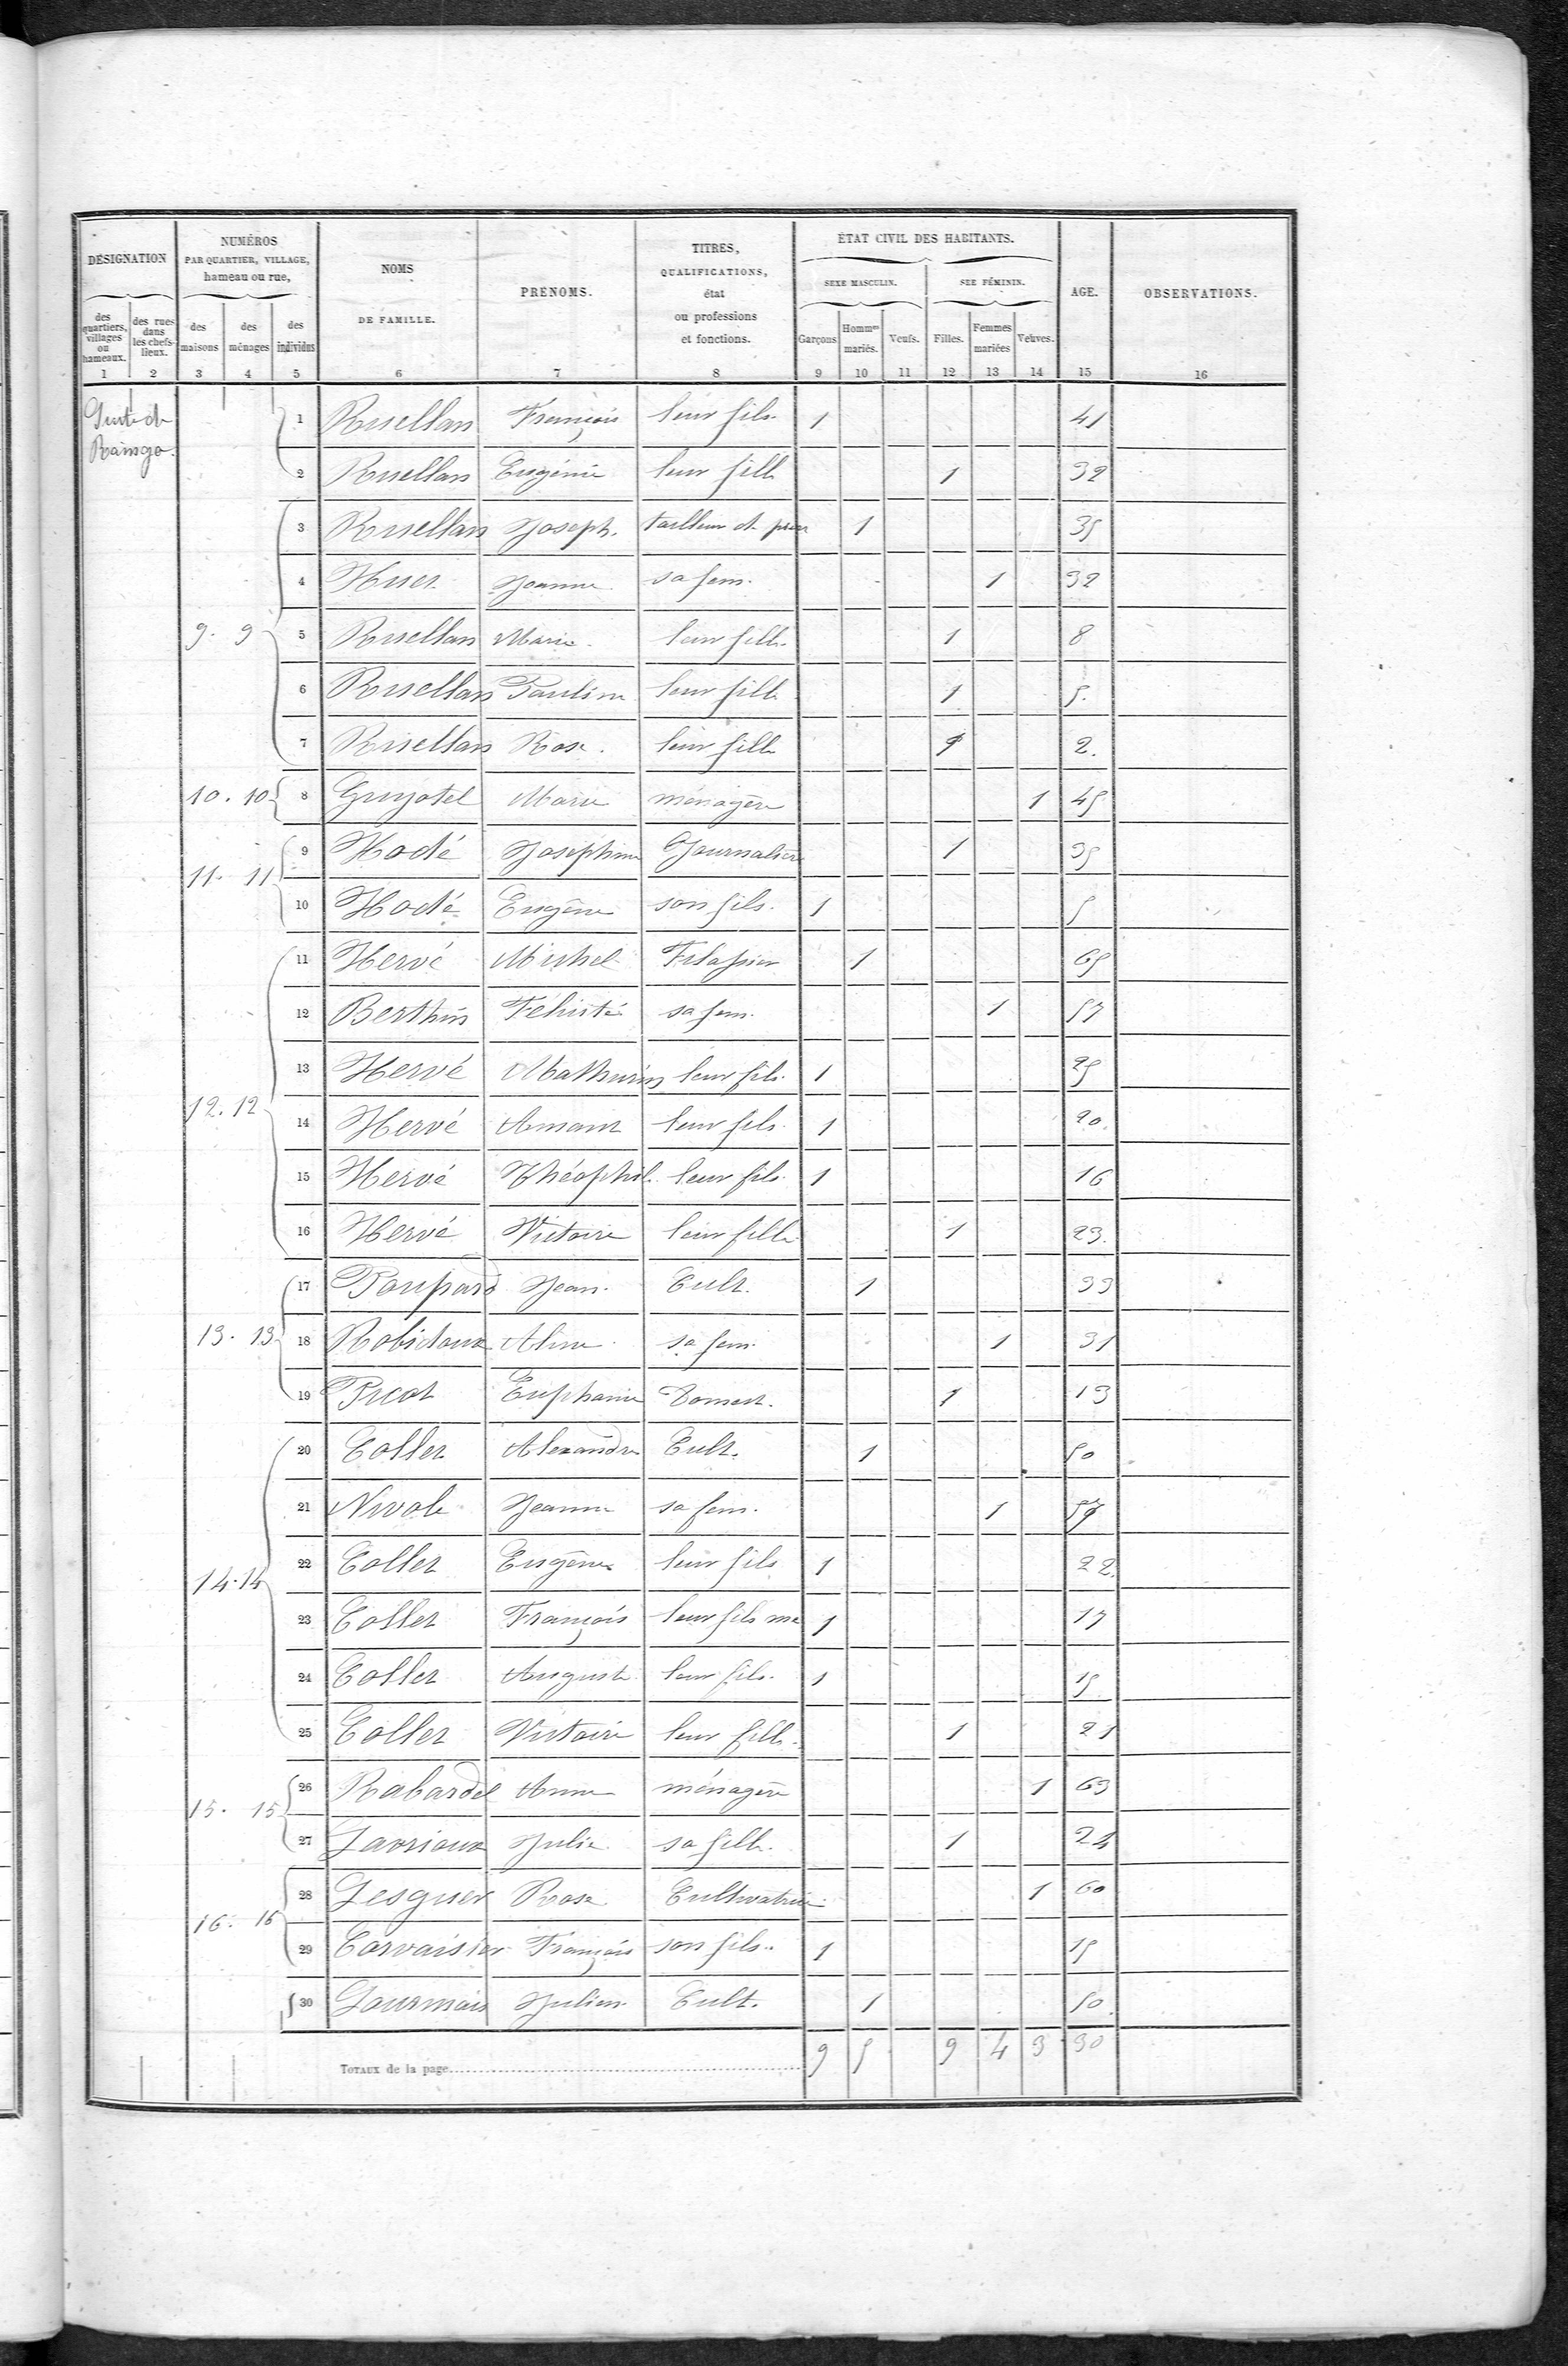 DÉSIGNATION
NUMÉROS
PAR QUARTIER, VILLAGE,
hameau ou rue,
NOMS
DE FAMILLE.
PRÉNOMS.
TITRES,
QUALIFICATIONS,
état
ou professions
et fonctions.
ÉTAT CIVIL DES HABITANTS.
SEXE MASCULIN.
SEE FÉMININ.
AGE.
OBSERVATIONS.
des quartiers, villages ou hameaux.
des rues dans les chefs-lieux.
des maisons
des ménages
des individus
Garçons
Hommes mariés.
Veufs.
Filles.
Femmes mariées
Veuves.
1 2 3 4 5 6 7 8 9 10 11 12 13 14 15 16
Suite de
1 Ruellan François leur fils 1 41
2 Ruellan Eugénie leur fille 1 32
3 Ruellan Joseph. tailleur de 1 35
4 Huet Jeanne sa fem. 1 32
9. 9 5 Ruellan Marie. leur fille. 1 8
6 Ruellan Pauline leur fille 1 5.
7 Ruellan Rose. leur fille 1 2.
10. 10 8 Guyotel Marie ménagère 1 45
9 Hodé Joséphine Journalière 1 35
11. 11
10 Hodé Eugène son fils. 1 5
11 Hervé Michel Filassier 1 65
12 Berthin Félicité sa fem. 1 57
13 Hervé Mathurin leur fils. 1 25
12. 12
14 Hervé Amant leur fils. 1 20.
15 Hervé Théophile leur fils. 1 16
16 Hervé Victoire leur fille 1 23.
17 Poupard Jean. Cult. 1 33
13. 13 18 Robidoux Aline sa fem. 1 31
19 Picot Euphanie Domest. 1 13
20 Collet Alexandre Cult. 1 50
21 Nivole Jeanne sa fem. 1 57
22 Collet Eugène leur fils 1 22.
14. 14
23 Collet François leur fils me 1 17
24 Collet Auguste leur fils. 1 15
25 Collet Victoire leur fille. 1 21
26 Rabardel Anne ménagère 1 63
15. 15
27 Lavrioux Julie sa fille. 1 24
28 Lesguer Rose Cultivatrice 1 60
16. 16
29 Corvaisier François son fils. 1 15
30 Gourmais Julien Cult. 1 50.
TOTAUX de la page 9 5 9 4 3 30